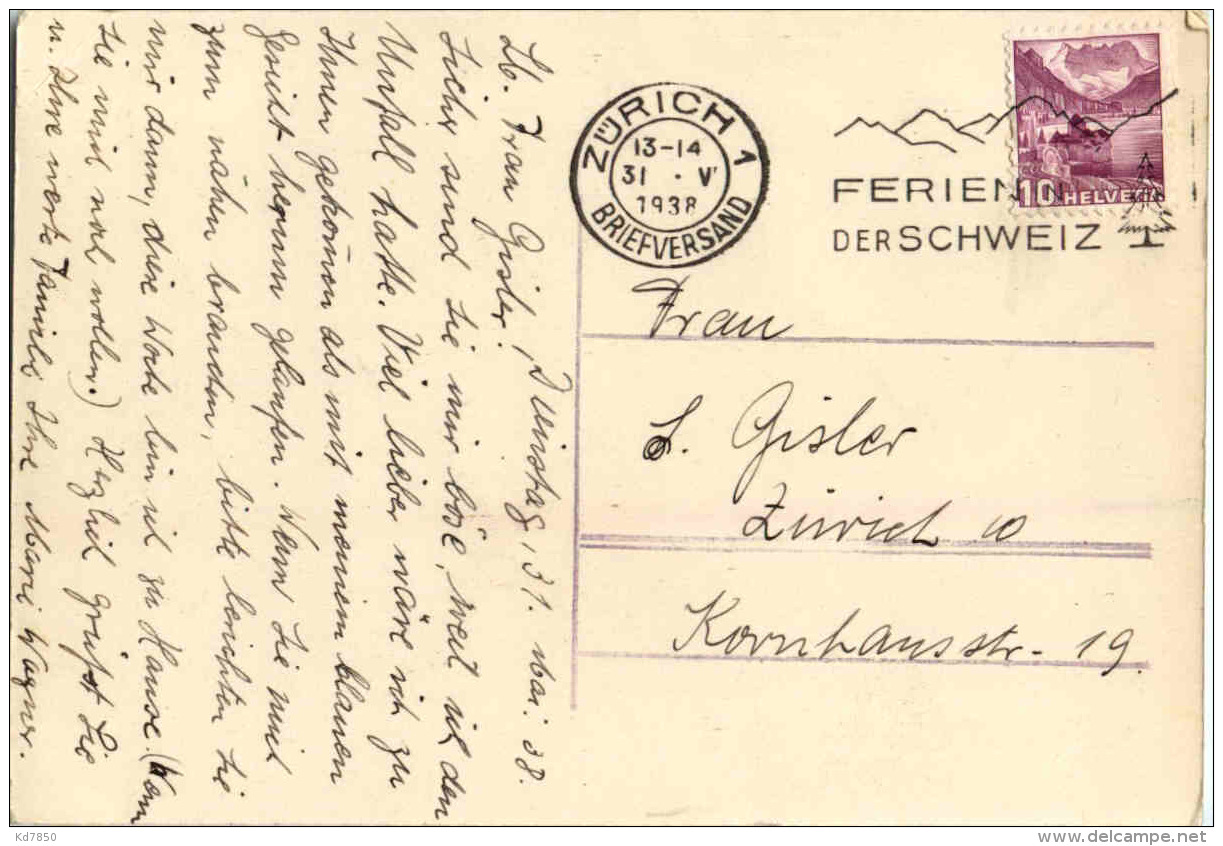 Lb. Frau Gisler, Dienstag, 31. Mai. 38.
Sicher sind Sie mir böse, weil ich den
Unfall hatte. Viel lieber wäre ich zu
Ihnen gekommen als mit meinem blauen
Gesicht herum gelaufen. Wenn Sie mich
zum nähen brauchen, bitte berichten Sie
mir dann, diese Woche bin ich zu Hause. (Wenn
Sie mich noch wollen.) Herzlich grüsst Sie
u. Ihre werte Familie Ihre Marie Wagner.
ZÜRICH 1
13-14
31 · V
1938
BRIEFVERSAND
FERIEN IN
DER SCHWEIZ
10 HELVETIA
Frau
L. Gisler
Zürich 10
Kornhausstr. 19.
Kd7850
delcampe.net